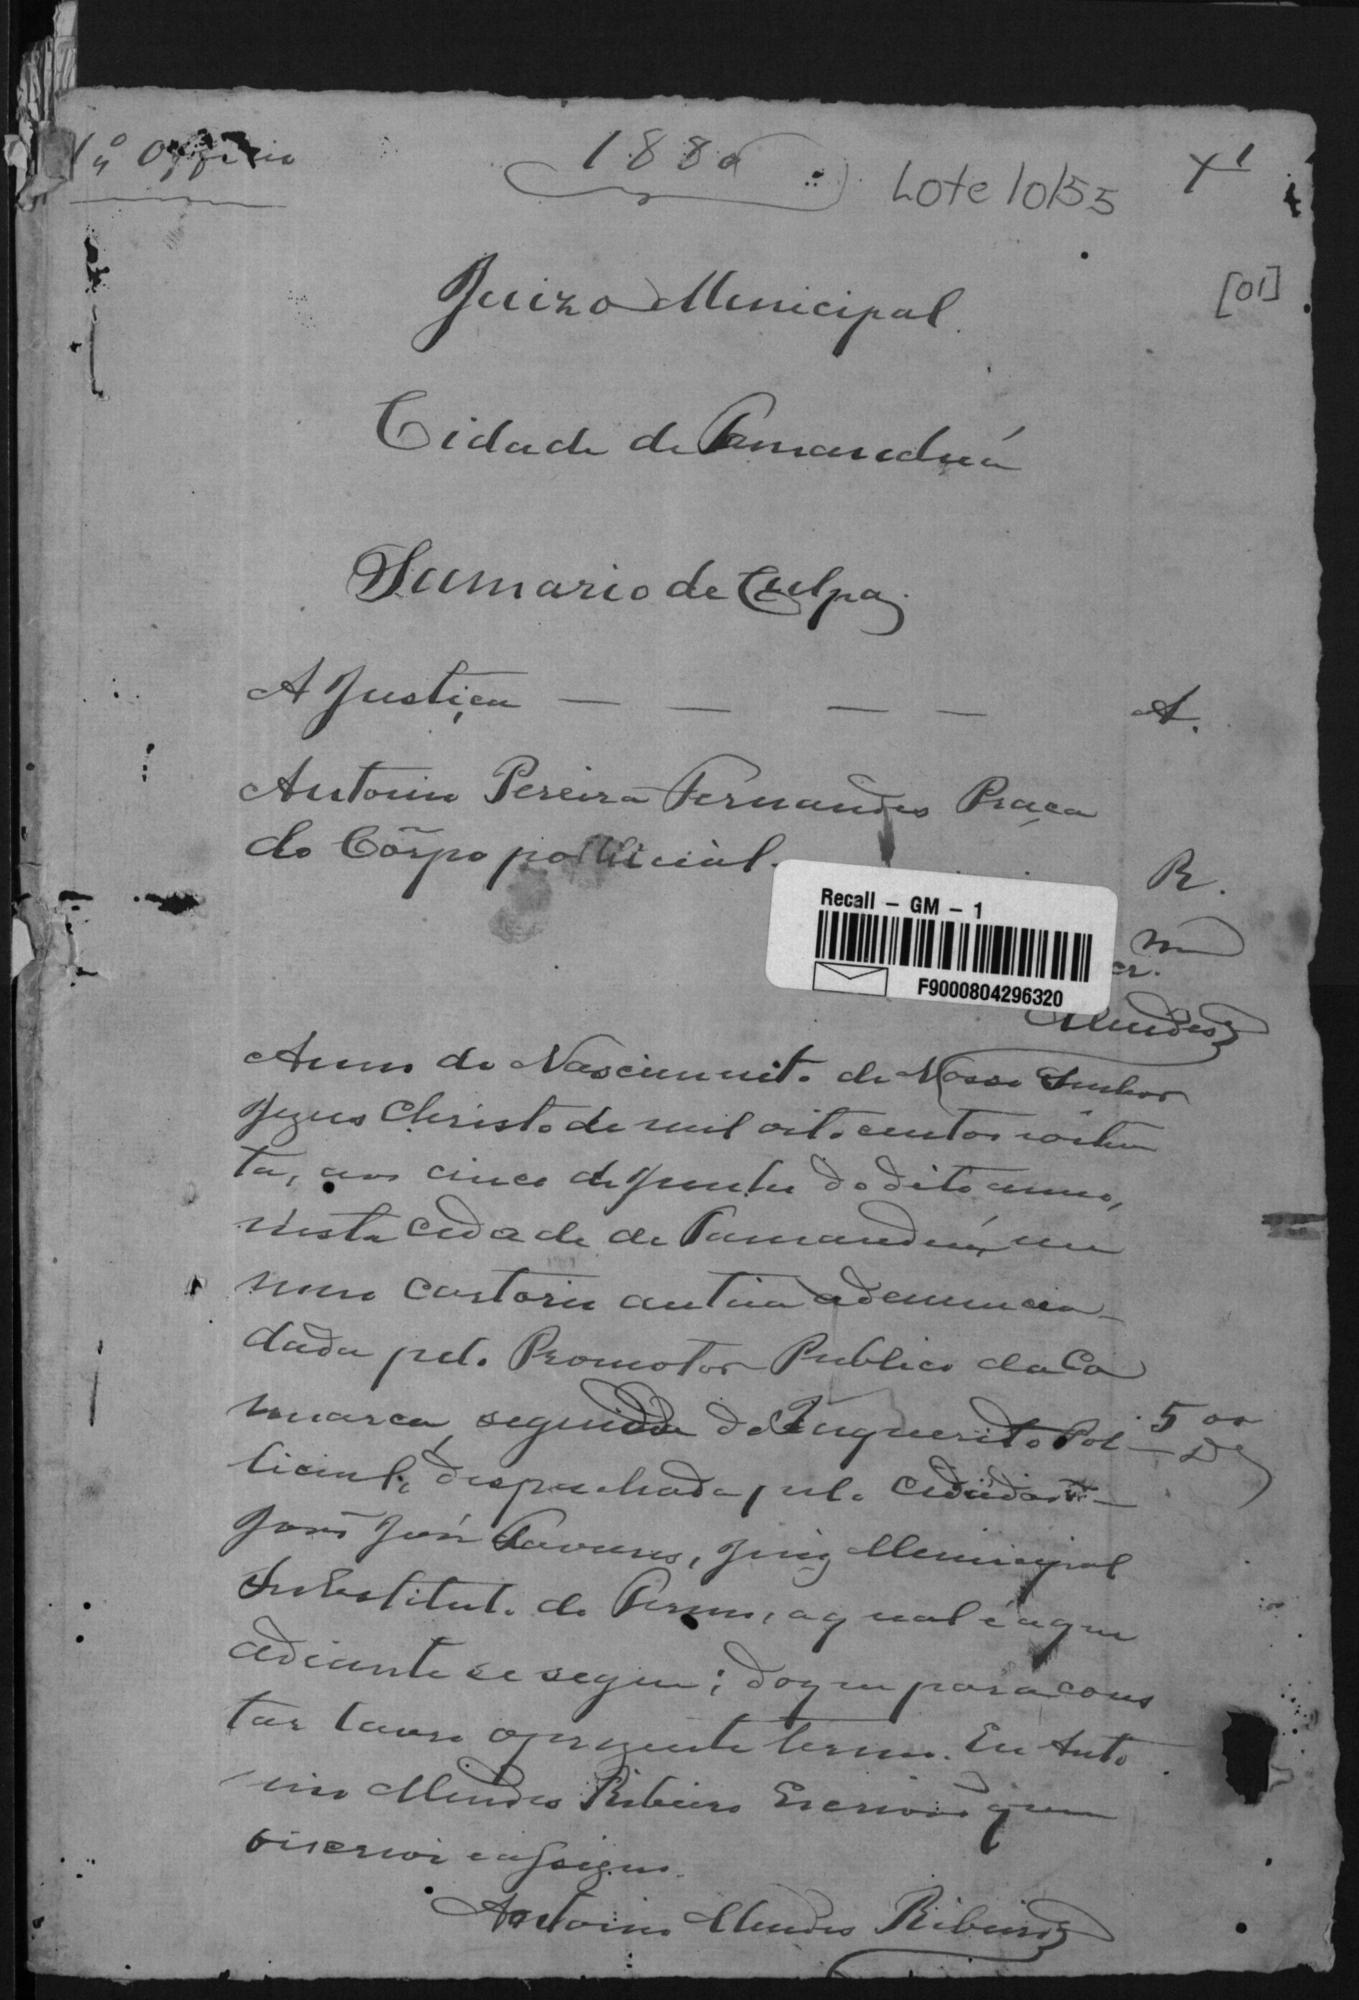 1º Officio
1880
Lote 10/55
1
[01]
Juizo Municipal
Cidade de Tamanduá
Sumario de Culpa
A Justiça — — — — A.
Antonio Pereira Fernandes Praça
do Côrpo pollicial. R.
Recall – GM – 1
F9000804296320
cr.
Mendes
Anno do Nascimento de Nosso Senhor
Jezus Christo de mil oito centos e oiten
ta, aos cinco de Junho do dito anno,
nesta cidade de Tamanduá, em
meu cartorio autuo a denuncia
dada pelo Promotor Publico da Co
marca, seguida do Inquerito Pol
licial, despachada pelo cidadão
João José Tavares, Juiz Municipal
Substituto do Termo, a qual é a que
adiante se segue; do que para cons
tar lavro o prezente termo. Eu Anto
nio Mendes Ribeiro Escrivão que
o iscrevi e assigno.
Antonio Mendes Ribeiro
500